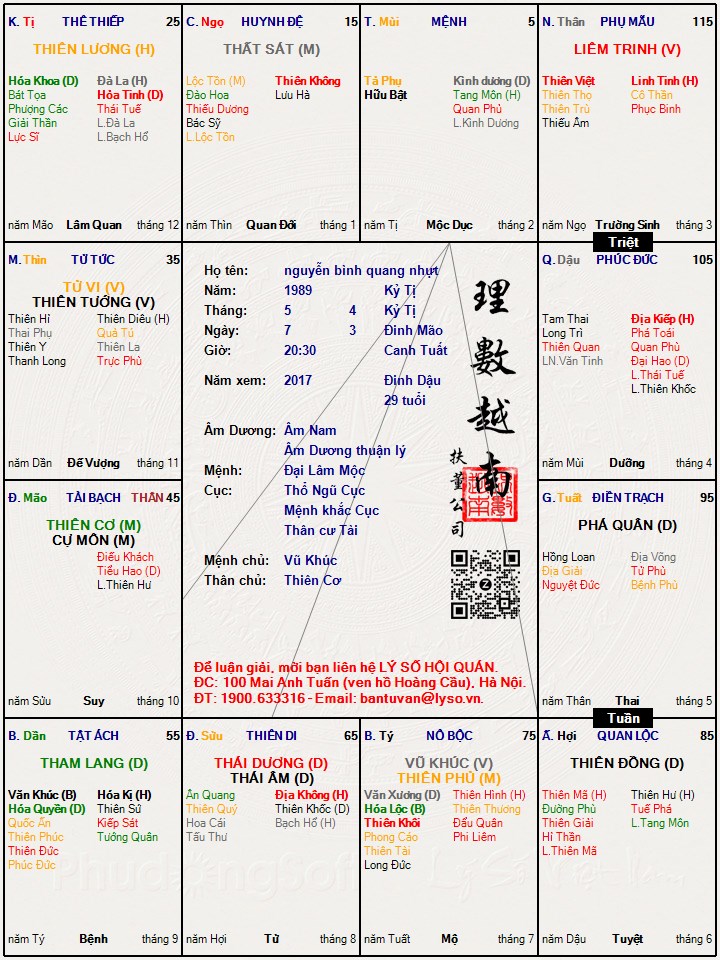 K. Tị THÊ THIẾP 25
THIÊN LƯƠNG (H)
Hóa Khoa (D) Đà La (H)
Bát Tọa Hỏa Tinh (D)
Phượng Các Thái Tuế
Giải Thần L.Đà La
Lực Sĩ L.Bạch Hổ
năm Mão Lâm Quan tháng 12
C. Ngọ HUYNH ĐỆ 15
THẤT SÁT (M)
Lộc Tồn (M) Thiên Không
Đào Hoa Lưu Hà
Thiếu Dương
Bác Sỹ
L.Lộc Tồn
năm Thìn Quan Đới tháng 1
T. Mùi MỆNH 5
Tả Phụ Kình dương (D)
Hữu Bật Tang Môn (H)
Quan Phủ
L.Kình Dương
năm Tị Mộc Dục tháng 2
N. Thân PHỤ MẪU 115
LIÊM TRINH (V)
Thiên Việt Linh Tinh (H)
Thiên Thọ Cô Thần
Thiên Trù Phục Binh
Thiếu Âm
năm Ngọ Trường Sinh tháng 3
Triệt
M. Thìn TỬ TỨC 35
TỬ VI (V)
THIÊN TƯỚNG (V)
Thiên Hỉ Thiên Diêu (H)
Thai Phụ Quả Tú
Thiên Y Thiên La
Thanh Long Trực Phù
năm Dần Đế Vượng tháng 11
Họ tên: nguyễn bình quang nhựt
Năm: 1989 Kỷ Tị
Tháng: 5 4 Kỷ Tị
Ngày: 7 3 Đinh Mão
Giờ: 20:30 Canh Tuất
Năm xem: 2017 Đinh Dậu
29 tuổi
Âm Dương: Âm Nam
Âm Dương thuận lý
Mệnh: Đại Lâm Mộc
Cục: Thổ Ngũ Cục
Mệnh khắc Cục
Thân cư Tài
Mệnh chủ: Vũ Khúc
Thân chủ: Thiên Cơ
理數越南
扶董公司
Để luận giải, mời bạn liên hệ LÝ SỐ HỘI QUÁN.
ĐC: 100 Mai Anh Tuấn (ven hồ Hoàng Cầu), Hà Nội.
ĐT: 1900.633316 - Email: bantuvan@lyso.vn.
Q. Dậu PHÚC ĐỨC 105
Tam Thai Địa Kiếp (H)
Long Trì Phá Toái
Thiên Quan Quan Phù
LN.Văn Tinh Đại Hao (D)
L.Thái Tuế
L.Thiên Khốc
năm Mùi Dưỡng tháng 4
Đ. Mão TÀI BẠCH THÂN 45
THIÊN CƠ (M)
CỰ MÔN (M)
Điếu Khách
Tiểu Hao (D)
L.Thiên Hư
năm Sửu Suy tháng 10
G. Tuất ĐIỀN TRẠCH 95
PHÁ QUÂN (D)
Hồng Loan Địa Võng
Địa Giải Tử Phù
Nguyệt Đức Bệnh Phù
năm Thân Thai tháng 5
Tuần
B. Dần TẬT ÁCH 55
THAM LANG (D)
Văn Khúc (B) Hóa Kị (H)
Hóa Quyền (D) Thiên Sứ
Quốc Ấn Kiếp Sát
Thiên Phúc Tướng Quân
Thiên Đức
Phúc Đức
năm Tý Bệnh tháng 9
Đ. Sửu THIÊN DI 65
THÁI DƯƠNG (D)
THÁI ÂM (D)
Ân Quang Địa Không (H)
Thiên Quý Thiên Khốc (D)
Hoa Cái Bạch Hổ (H)
Tấu Thư
năm Hợi Tử tháng 8
B. Tý NÔ BỘC 75
VŨ KHÚC (V)
THIÊN PHỦ (M)
Văn Xương (D) Thiên Hình (H)
Hóa Lộc (B) Thiên Thương
Thiên Khôi Đẩu Quân
Phong Cáo Phi Liêm
Thiên Tài
Long Đức
năm Tuất Mộ tháng 7
Ấ. Hợi QUAN LỘC 85
THIÊN ĐỒNG (D)
Thiên Mã (H) Thiên Hư (H)
Đường Phù Tuế Phá
Thiên Giải L.Tang Môn
Hỉ Thần
L.Thiên Mã
năm Dậu Tuyệt tháng 6